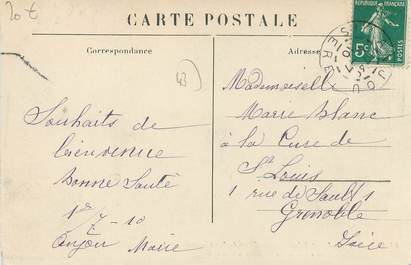 20 €
CARTE POSTALE
Correspondance
Adresse
5c
POSTES
43
Mademoiselle
Marie Blanc
à la Cure de
St Louis
1 rue de Sault 1
Grenoble
Isère
Souhaits de
bienvenue
bonne Santé
1er 7 - 10
Anjou Marie